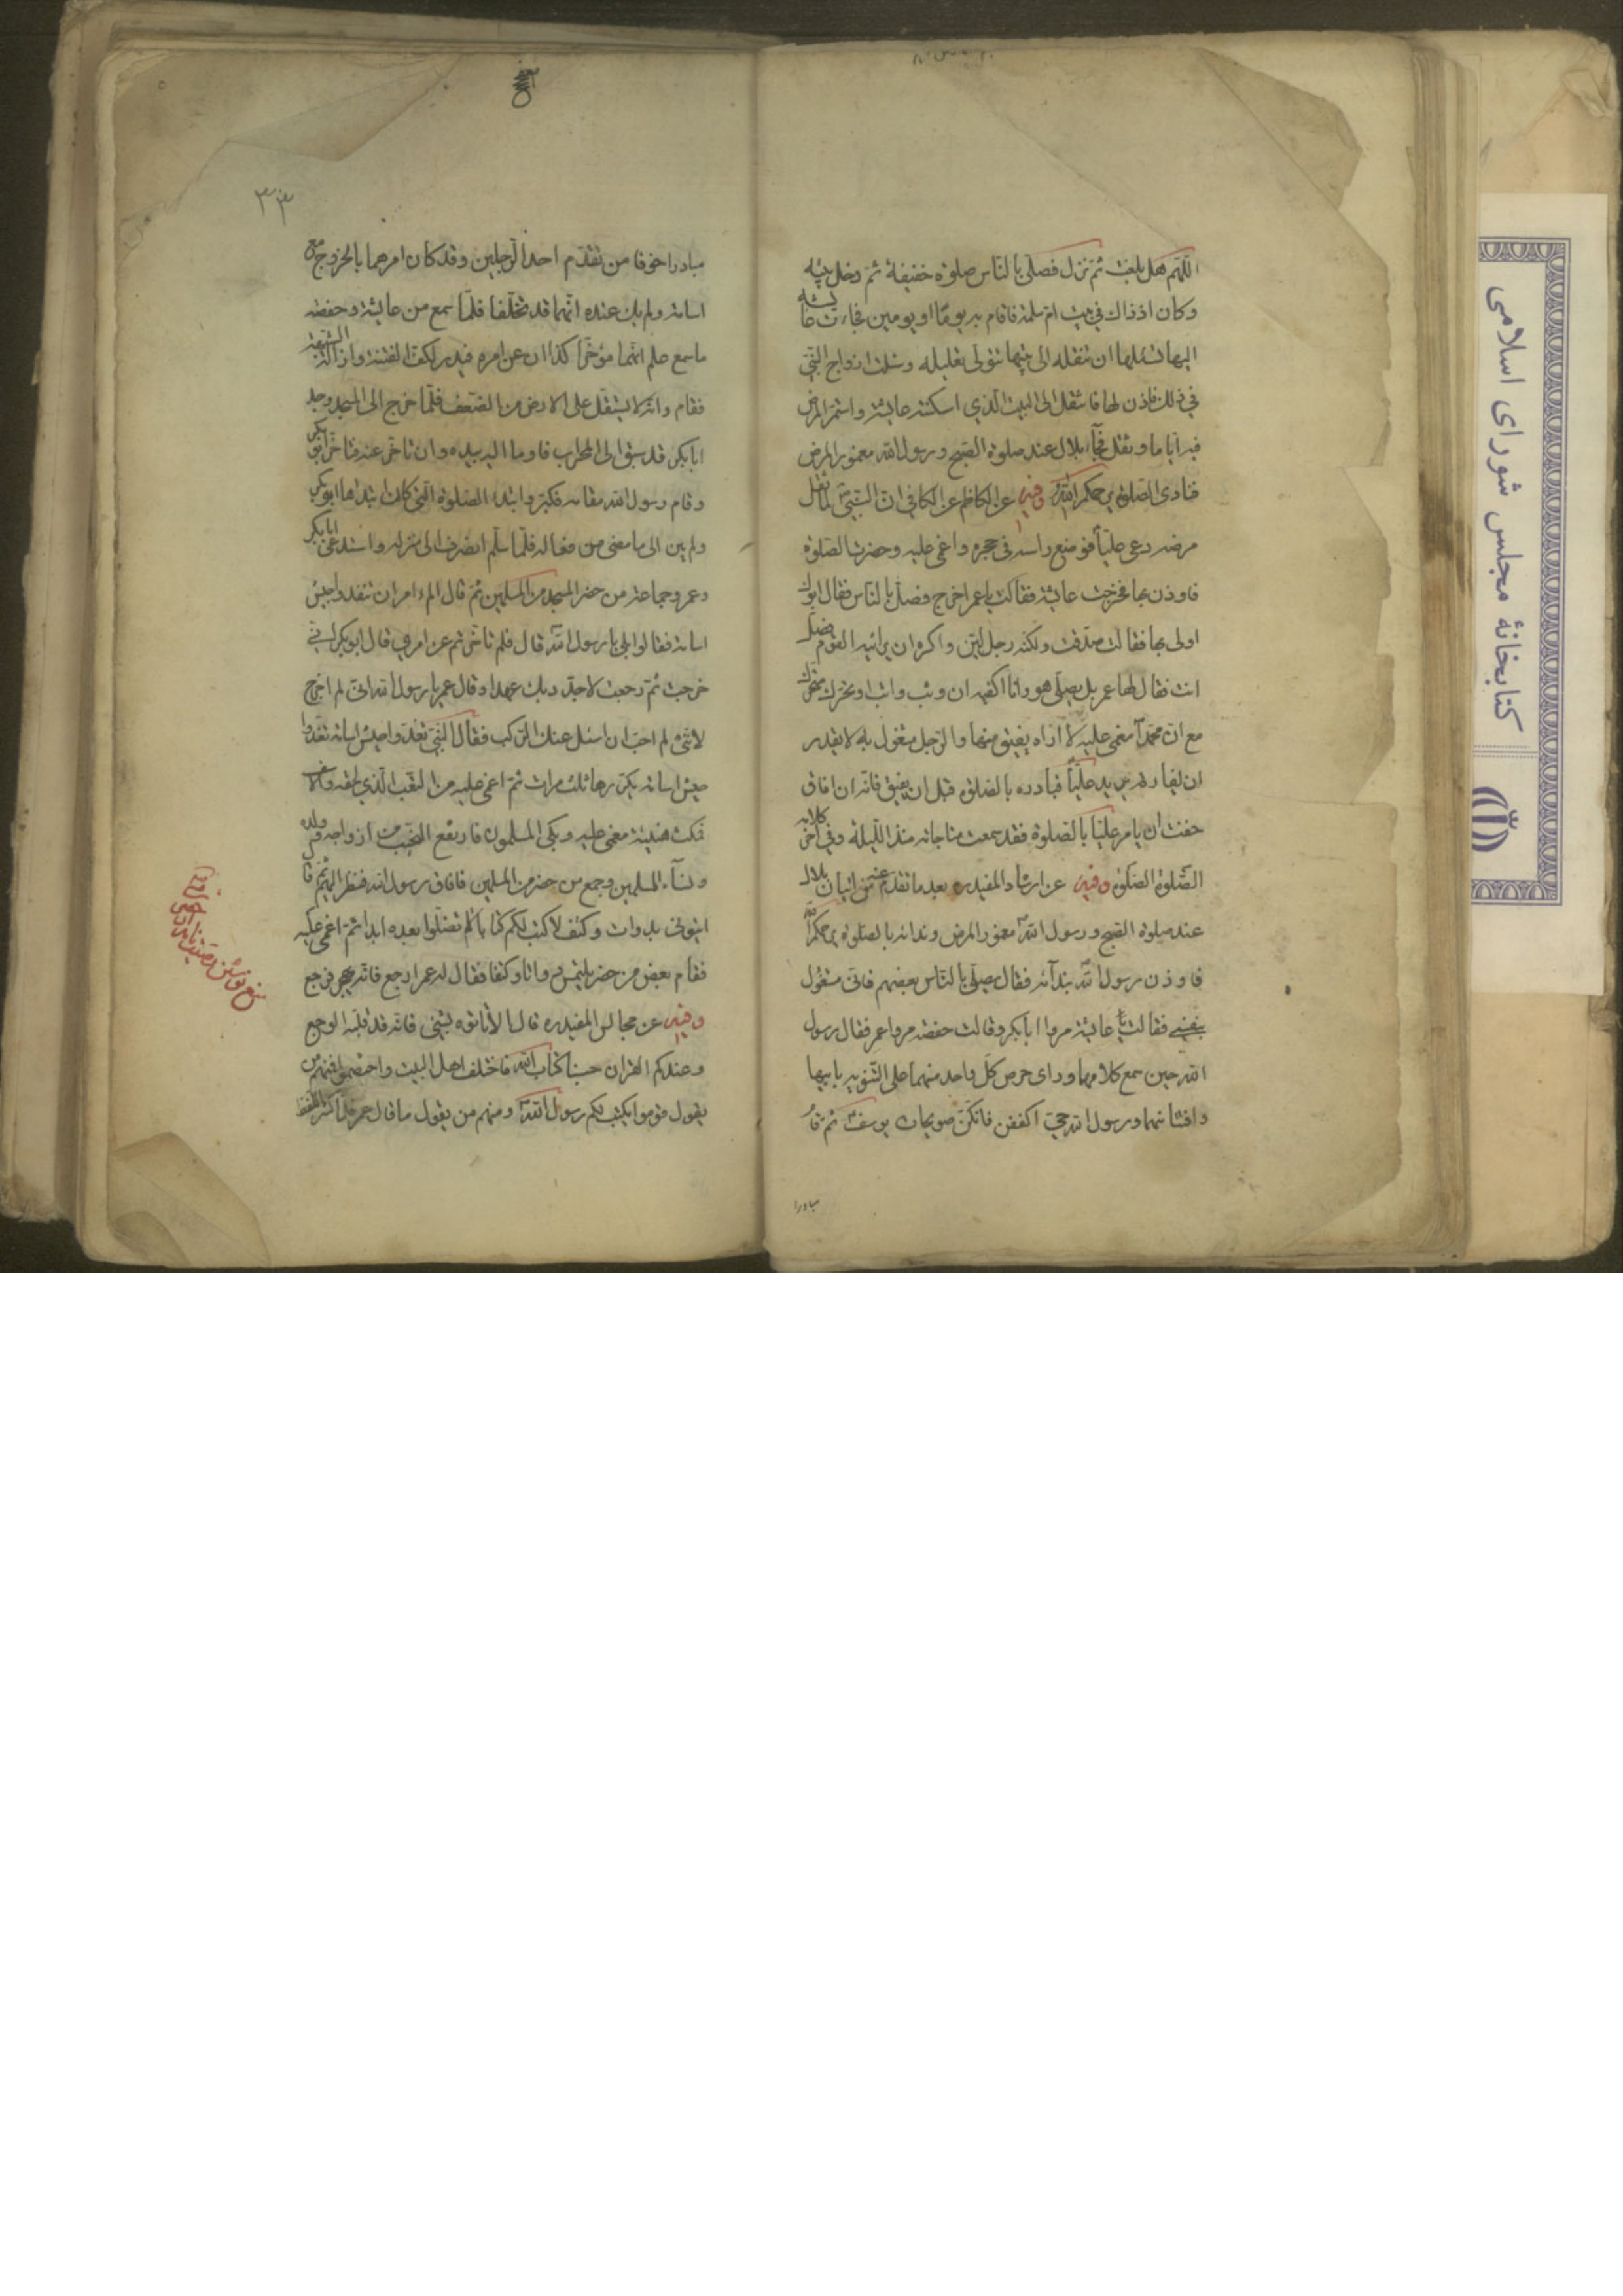 اللّهم هل بلغت ثم نزل فصلّى بالناس صلوة خفيفة ثم دخل بيته
وكان اذ ذاك في بيت ام سلمة فاقام به يوما او يومين فجاءت عايشه
اليها تسئلها ان تنقله الى بيتها تتولى تعليله وسئلت ازواج النبي
في ذلك فاذن لها فانتقل الى البيت الذي اسكنته عايشة واستمر المرض
فيه اياما وثقل فجاء بلال عند صلوة الصبح ورسول الله مغمور بالمرض
فنادى الصلوة يرحمكم الله وفيه عن الكاظم عن الكافي ان النبي لما ثقل
مرضه دعى عليا فوضع راسه في حجره واغمى عليه وحضرت الصلوة
فاوذن بها فخرجت عايشة فقالت يا عمر اخرج فصل بالناس فقال ابوك
اولى بها فقالت صدقت ولكنه رجل لين واكره ان يواثبه القوم فصل
انت فقال لها عمر بل يصلي هو وانا اكفيه ان وثب واثب او تحرك متحرك
مع ان محمدا مغمى عليه لا اراه يفيق منها والرجل مشغول به لا يقدر
ان يفارقه يريد عليا فبادره بالصلوة قبل ان يفيق فانه ان افاق
خفت ان يامر عليا بالصلوة فقد سمعت مناجاته منذ الليلة وفي اخر كلامه
الصلوة الصلوة وفيه عن ارشاد المفيد ره بعد ما تقدم عنه من اتيان بلال
عند صلوة الصبح ورسول الله مغمور بالمرض وندائه بالصلوة يرحمكم الله
فاوذن رسول الله بندائه فقال يصلي بالناس بعضهم فاني مشغول
بنفسي فقالت عايشة مروا ابا بكر وقالت حفصه مروا عمر فقال رسول
الله حين سمع كلامهما وراى حرص كل واحد منهما على التنويه بابيها
وافتتانهما ورسول الله حي اكففن فانكن صويحبات يوسف ثم قام
مبادرا
٣٣
مبادرا خوفا من تقدم احد الرجلين وقد كان امرهما بالخروج مع
اسامة ولم يك عنده انهما قد تخلفا فلما سمع من عايشة وحفصه
ما سمع علم انهما مؤخرا كذا ان عن امره فبدر لكف الفتنة وازالة الشبهة
فقام وانه لا يستقل على الارض من الضعف فلما خرج الى المسجد وجد
ابا بكر قد سبق الى المحراب فاوما اليه بيده وان تاخر عنه فتاخر ابو بكر
وقام رسول الله مقامه فكبر وابتدء الصلوة التي كان ابتداها ابو بكر
ولم يبن الى ما مضى من فعاله فلما سلم انصرف الى منزله واستدعى ابا بكر
وعمر وجماعة من حضر المسجد من المسلمين ثم قال الم امر ان تنفذوا جيش
اسامة فقالوا بلى يا رسول الله قال فلم تاخرتم عن امري قال ابو بكر اني
خرجت ثم رجعت لاجدد بك عهدا وقال عمر يا رسول الله اني لم اخرج
لانني لم احب ان اسئل عنك الركب فقال النبي نفذوا جيش اسامة نفذوا
جيش اسامة يكررها ثلث مرات ثم اغمى عليه من التعب الذي لحقه والاسف
فمكث هنيئة مغمى عليه وبكى المسلمون فارتفع النحيب من ازواجه وولده
ونساء المسلمين وجمع من حضر من المسلمين فافاق رسول الله فنظر اليهم ثم قا
ايتوني بدوات وكتف لاكتب لكم كتابا لم تضلوا بعده ابدا ثم اغمى عليه
فقام بعض من حضر يلتمس دواتا وكتفا فقال له عمر ارجع فانه يهجر فرجع
وفيه عن مجالس المفيد ره قال لا تاتوه بشئ فانه قد غلبه الوجع
وعندكم القران حسبنا كتاب الله فاختلف اهل البيت واختصموا فمنهم من
يقول قوموا يكتب لكم رسول الله ومنهم من يقول ما قال عمر فلما كثر اللغط
كتابخانهٔ مجلس شورای اسلامی